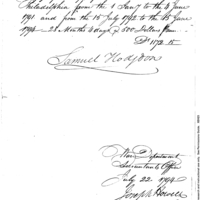 Philadelphia from the 1 Jany to the 4 June
1791. and from the 15 July 1792 to the 15 June
1794. 28 Months 4 days @ 500 Dollars
Ds 1172.
Samuel Hodgdon
War Department
Accountants Office
July 22. 1794
Joseph Howell